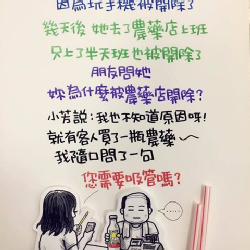 因為玩手機被開除了
幾天後 她去了農藥店上班
只上了半天班也被開除了
朋友問她
妳為什麼被農藥店開除?
小芳說:我也不知道原因呀!
就有客人買了一瓶農藥~
我隨口問了一句
您需要吸管嗎?